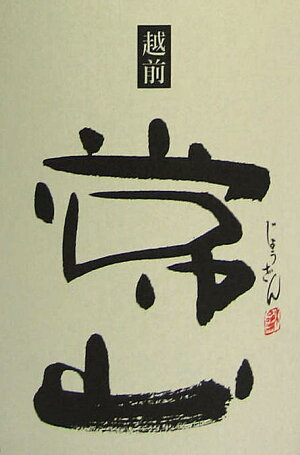 越前
常山
じょうざん